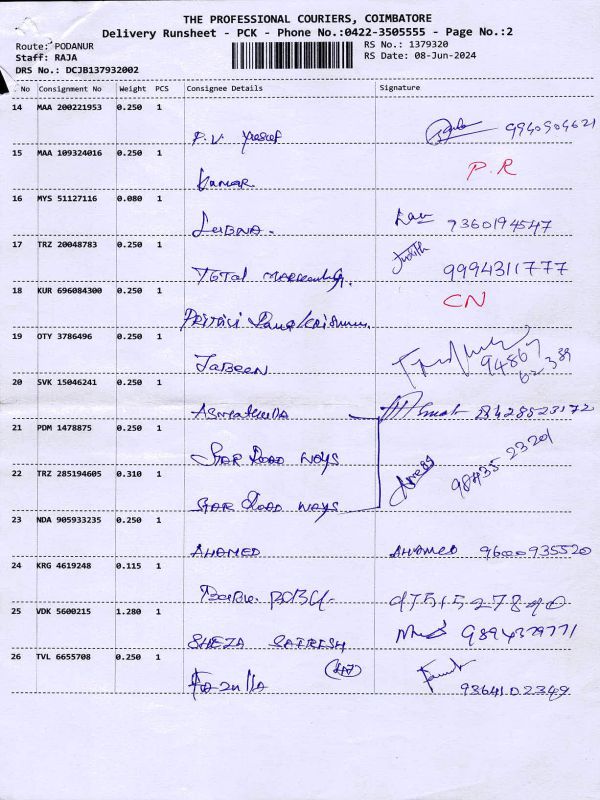 THE PROFESSIONAL COURIERS, COIMBATORE
Delivery Runsheet - PCK - Phone No.:0422-3505555 - Page No.:2
Route: PODANUR RS No.: 1379320
Staff: RAJA RS Date: 08-Jun-2024
DRS No.: DCJB137932002
No Consignment No Weight PCS Consignee Details Signature
14 MAA 200221953 0.250 1
P.V 9940904621
15 MAA 109324016 0.250 1
Kumar P.R
16 MYS 51127116 0.080 1
LUBNA. 9360194547
17 TRZ 20048783 0.250 1
TOTAL Judith 9994311777
18 KUR 696084300 0.250 1
CN
19 OTY 3786496 0.250 1
JABEEN
20 SVK 15046241 0.250 1
21 PDM 1478875 0.250 1
STAR ROAD WAYS 98435 2320
22 TRZ 285194605 0.310 1
STAR ROAD WAYS
23 NDA 905933235 0.250 1
AHAMED AHAMED 9600935520
24 KRG 4619248 0.115 1
25 VDK 5600215 1.280 1
SHEZA
26 TVL 6655708 0.250 1
9364102349